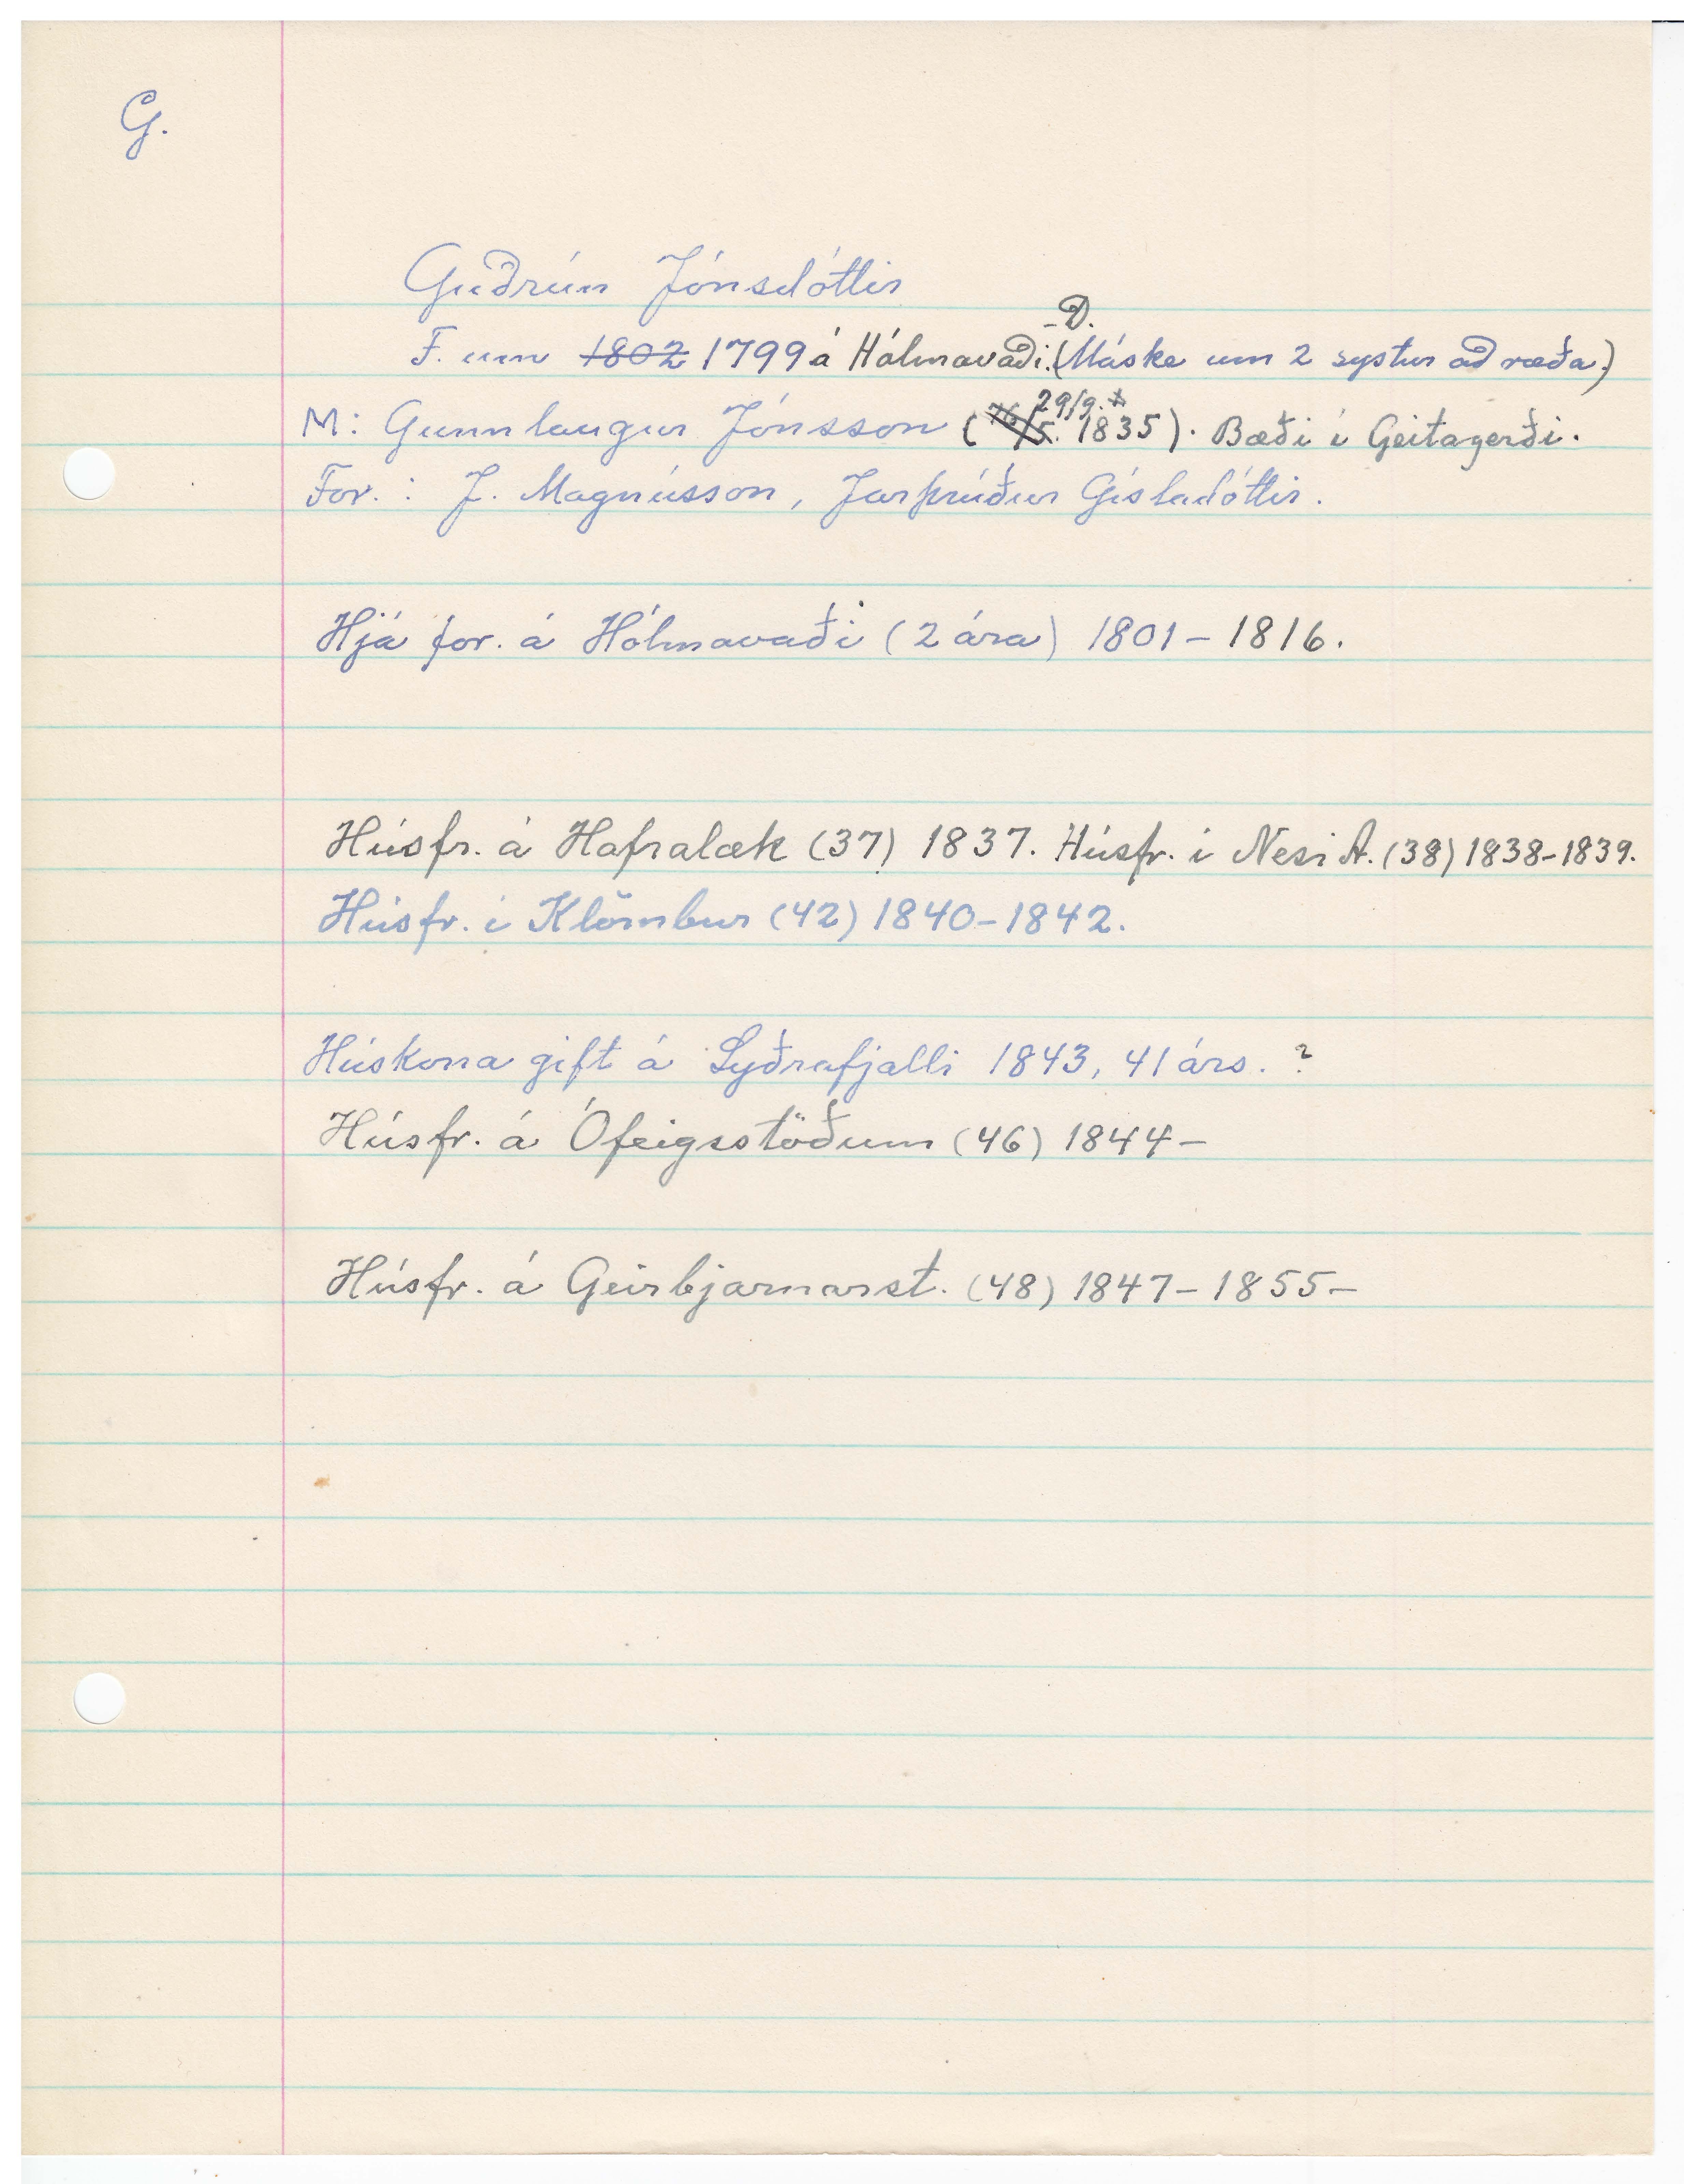 G.
Guðrún Jónsdóttir
- D.
F. um 1802 1799 á Hólmavaði. (Máske um 2 systur að ræða.)
29/9.
M: Gunnlaugur Jónsson ( 1835). Bæði í Geitagerði.
For.: J. Magnússon, Jarþrúður Gísladóttir.
Hjá for. á Hólmavaði (2 ára) 1801 - 1816.
Húsfr. á Hafralæk (37) 1837. Húsfr. í Nesi A. (38) 1838-1839.
Húsfr. í Klömbur (42) 1840-1842.
Húskona gift á Syðrafjalli 1843, 41 árs. ?
Húsfr. á Ófeigsstöðum (46) 1844-
Húsfr. á Geirbjarnarst. (48) 1847-1855-